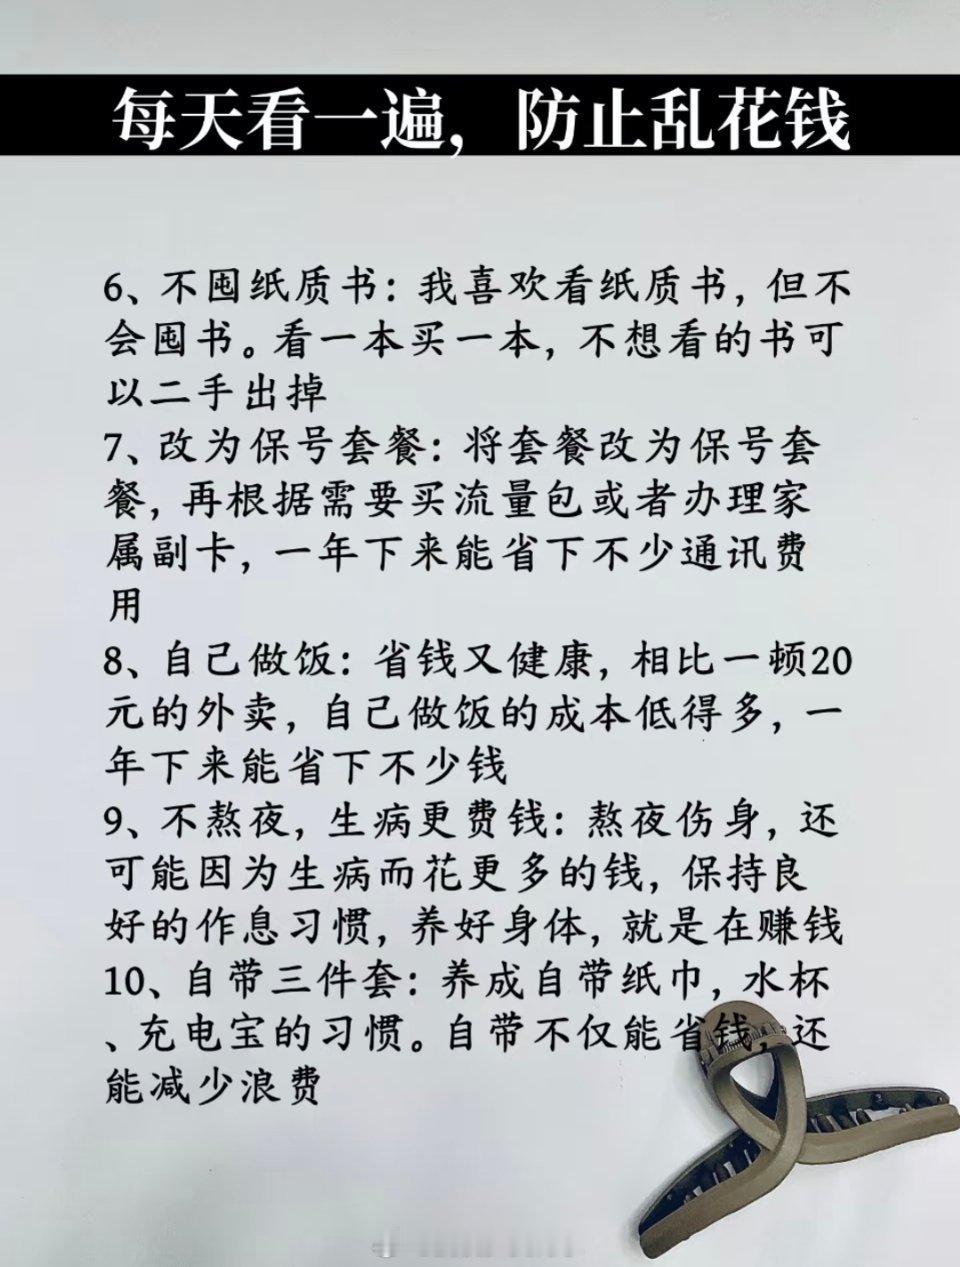 每天看一遍，防止乱花钱
6、不囤纸质书：我喜欢看纸质书，但不
会囤书。看一本买一本，不想看的书可
以二手出掉
7、改为保号套餐：将套餐改为保号套
餐，再根据需要买流量包或者办理家
属副卡，一年下来能省下不少通讯费
用
8、自己做饭：省钱又健康，相比一顿20
元的外卖，自己做饭的成本低得多，一
年下来能省下不少钱
9、不熬夜，生病更费钱：熬夜伤身，还
可能因为生病而花更多的钱，保持良
好的作息习惯，养好身体，就是在赚钱
10、自带三件套：养成自带纸巾，水杯
、充电宝的习惯。自带不仅能省钱，还
能减少浪费